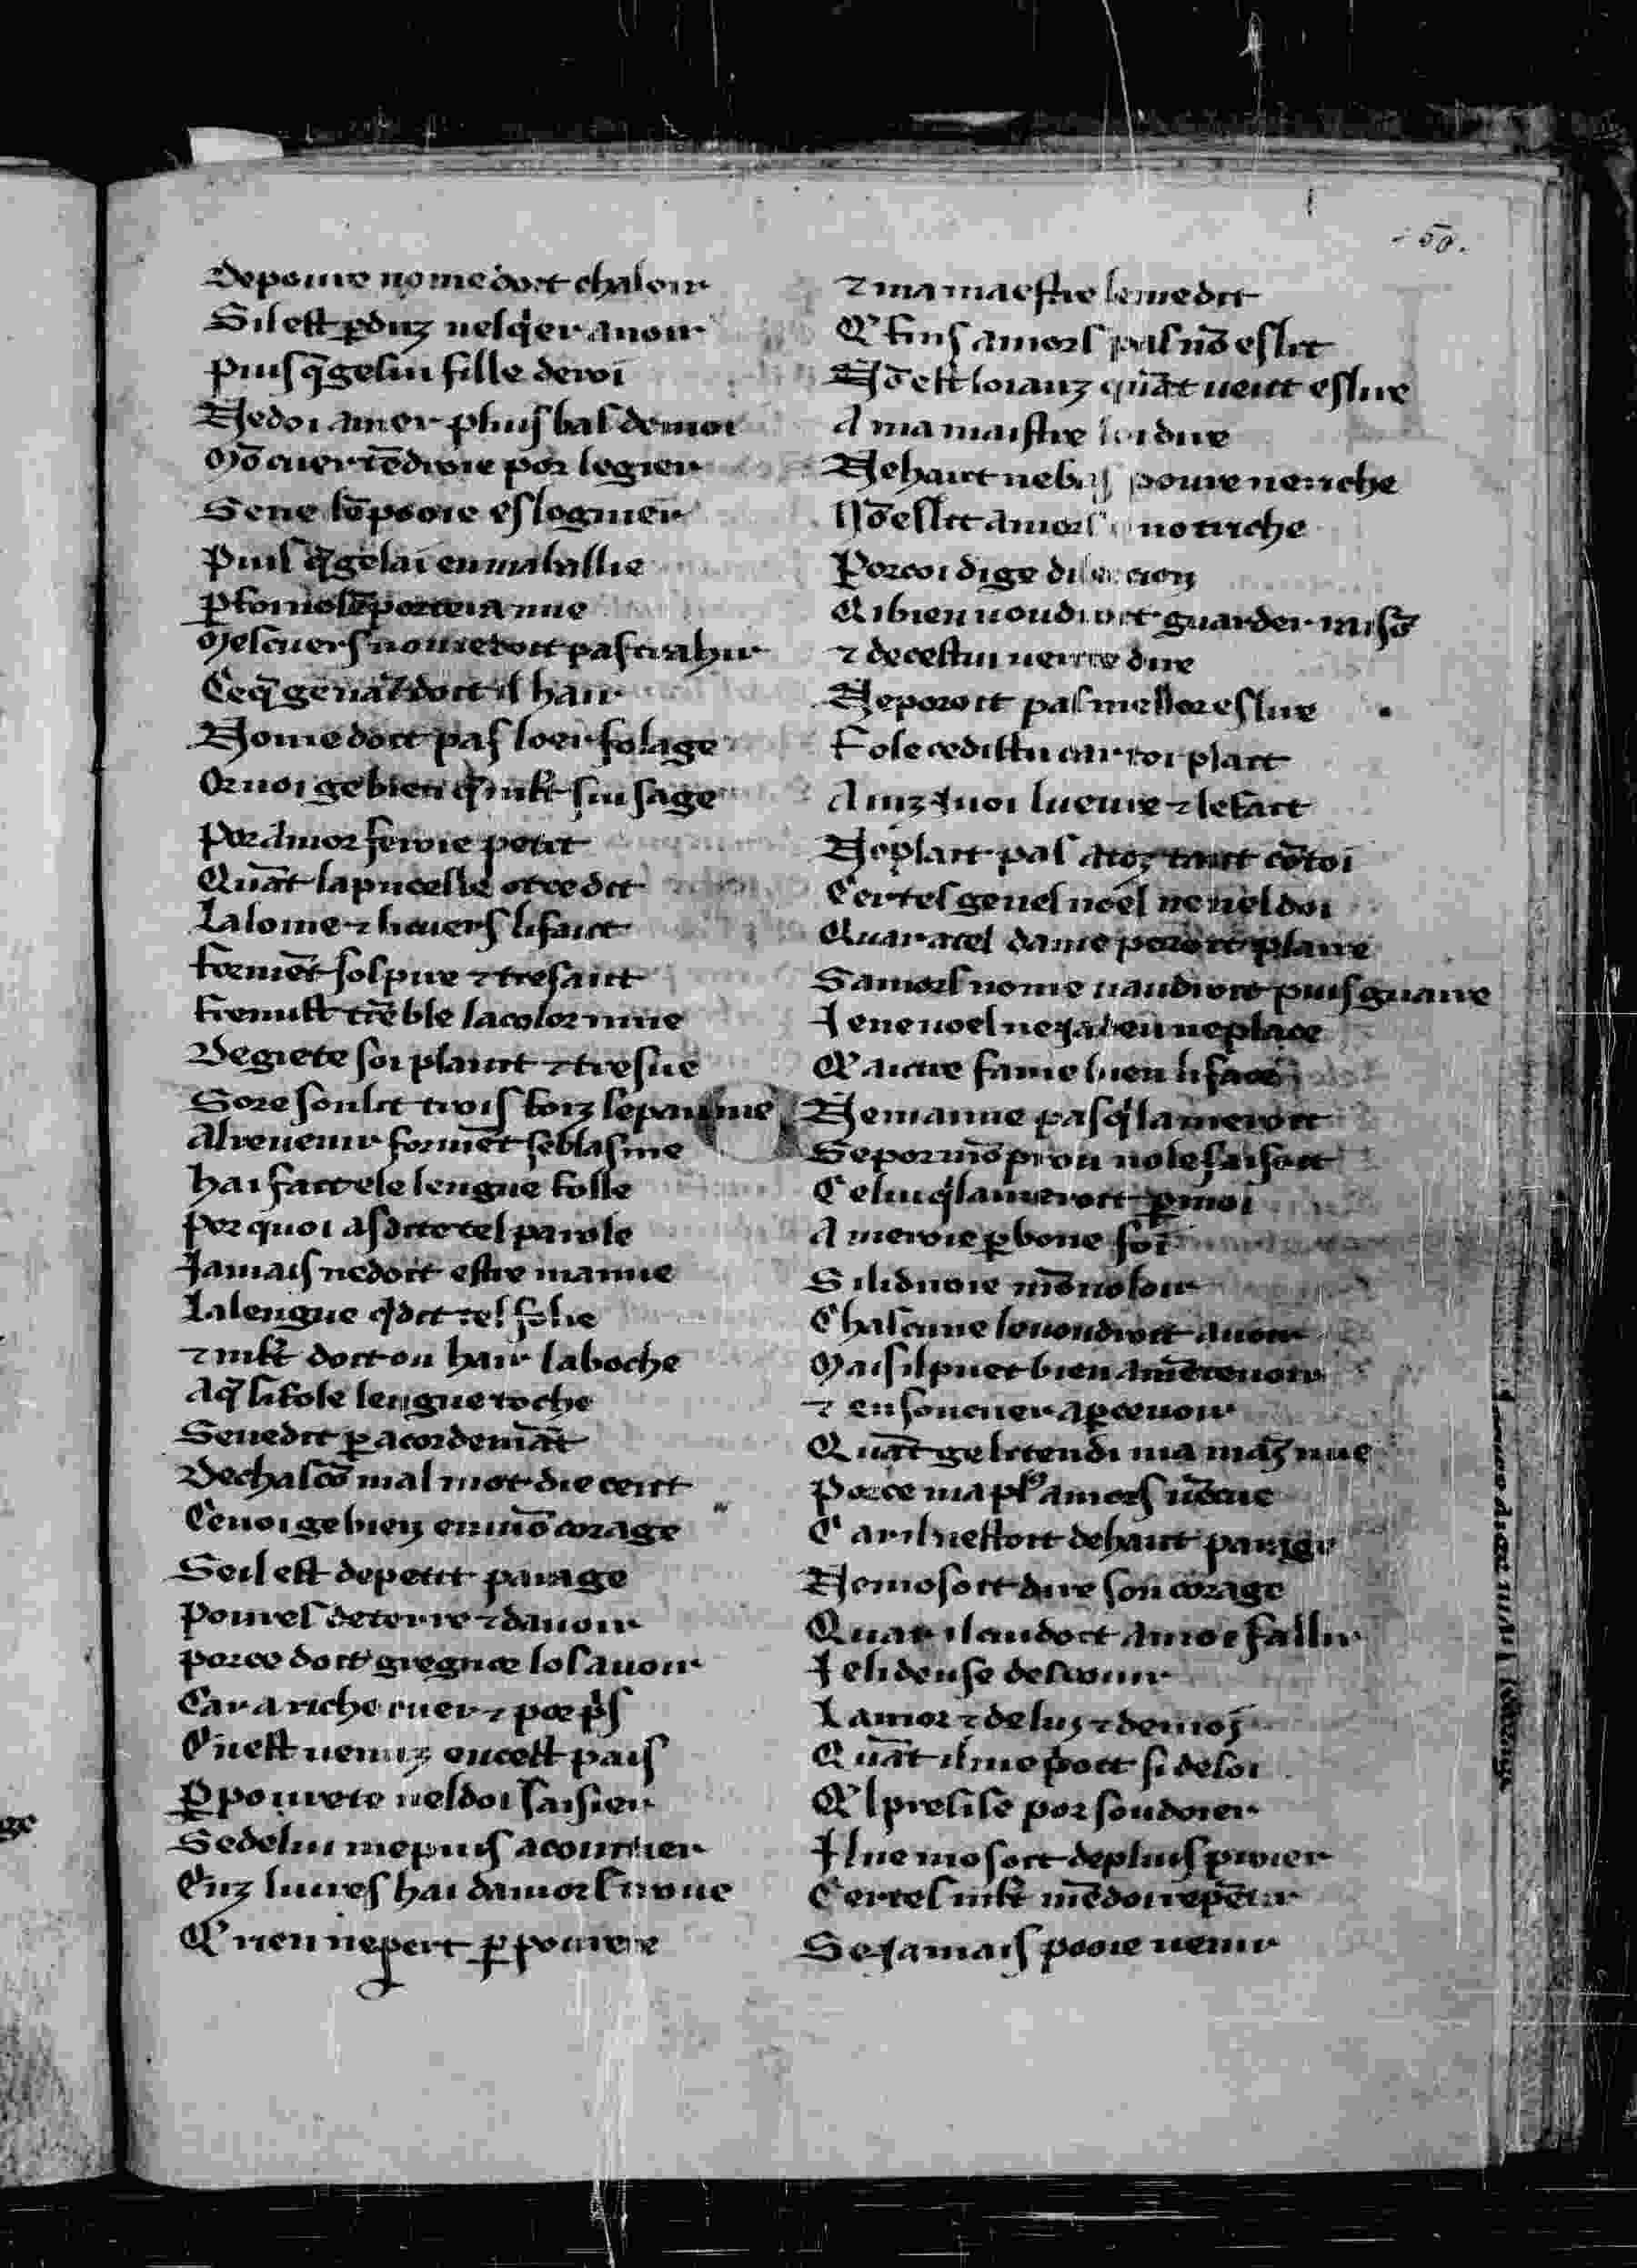 .50.
De poure no me doit chaloir
Sil est ꝑduz nelq̃er auoir
Puis q̃ ge sui fille de roi
Ne doi amer plus bas de moi
Mõ cuer tẽdroie por legier
Se ne lẽ pooie esloignier
Puis q̃ ge lai en ma baillie
ꝑ foi nolẽporteia mie
Mes cuers no me doit pas trahir
Ce q̃ ge uã doit il hair
No me doit pas loer folage
Or uoi ge bien q̃ mlt̃ sui sage
Por amor feroie petit
Quãt la pucelle ot ce dit
La lome ⁊ li cuers li faut
Formẽt sospire ⁊ tresaut
Fremist trẽble la color mue
De giete soi plaint ⁊ tresue
Sore son lit trois foiz se paumme
Al reuenir formẽt se blasme
Hai fait ele lengue folle
Por quoi as dite tel parole
Jamais ne doit estre manue
La lengue q̃ dit tel folie
⁊ mlt̃ doit on hair la boche
A q̃ si fole lengue toche
Se ne dit ꝑ acordemãt
De chascõ mal mot die cent
Ce uoi ge bien en mõ corage
Se il est de petit parage
Poures de terre ⁊ dauoir
Por ce doit gregnor los auoir
Car a riche cuer ⁊ por p̃s
Cʼnest uenuz en cest pais
ꝑ pourete nel doi laisier
Se de lui me puis acointier
Enz liures hai damors troue
Qʼ rien ne pert ꝑ pourete
⁊ ma maestre le me dit
Qʼ fins amors pas nõ eslit
Nõ est loianz quãt ueut eslire
A ma maistre loi dire
Ne haut ne bas poure ne riche
Nõ eslit amors no triche
Por coi dige
Qi bien uoudroit guarder misõ
⁊ de cestui uerite dire
Ne poroit pas mellor eslire
Fole ce dis tu car toi plait
A mz q̃ uoi lueure ⁊ le fait
No plait pas a toz tant cõ toi
Certes ge nel uoel ne nel doi
Quar a tel dame poroit plaire
Samors no me uaudroit puis guaire
Je ne uoel ne ja deu ne place
Qʼ autre fame bien li face
Ne manue pas q̃ lameroit
Se por mõ prou no le faisoit
Celui q̃ lameroit ꝑ moi
Ameroie ꝑ bone foi
Si li diroie mõ uoloir
Chascune le uoudroit auoir
Mais il puet bien amẽteuoir
⁊ en son cuer aꝑceuoir
Quãt ge li tendi ma maĩ nue
Por ce ma pl̃ amors uẽcue
Car il nestoit de haut parage
Ne mosoit dire son corage
Quar il cudoit a moi faillir
Je li deuse descourir
Lamor ⁊ de lui ⁊ de moi
Quãt il me poit si de soi
Qʼl presise por soudoier
Il ne mosoit de plus proier
Certes mlt̃ mẽ doi repẽtir
Se jamais pooie uenir